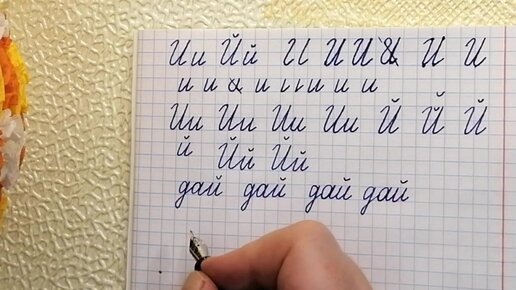 Ии Йй И И И И И И
и и и и и и и и
Ии Ии Ии Ии Й Й Й
й Йй Йй
дай дай дай дай